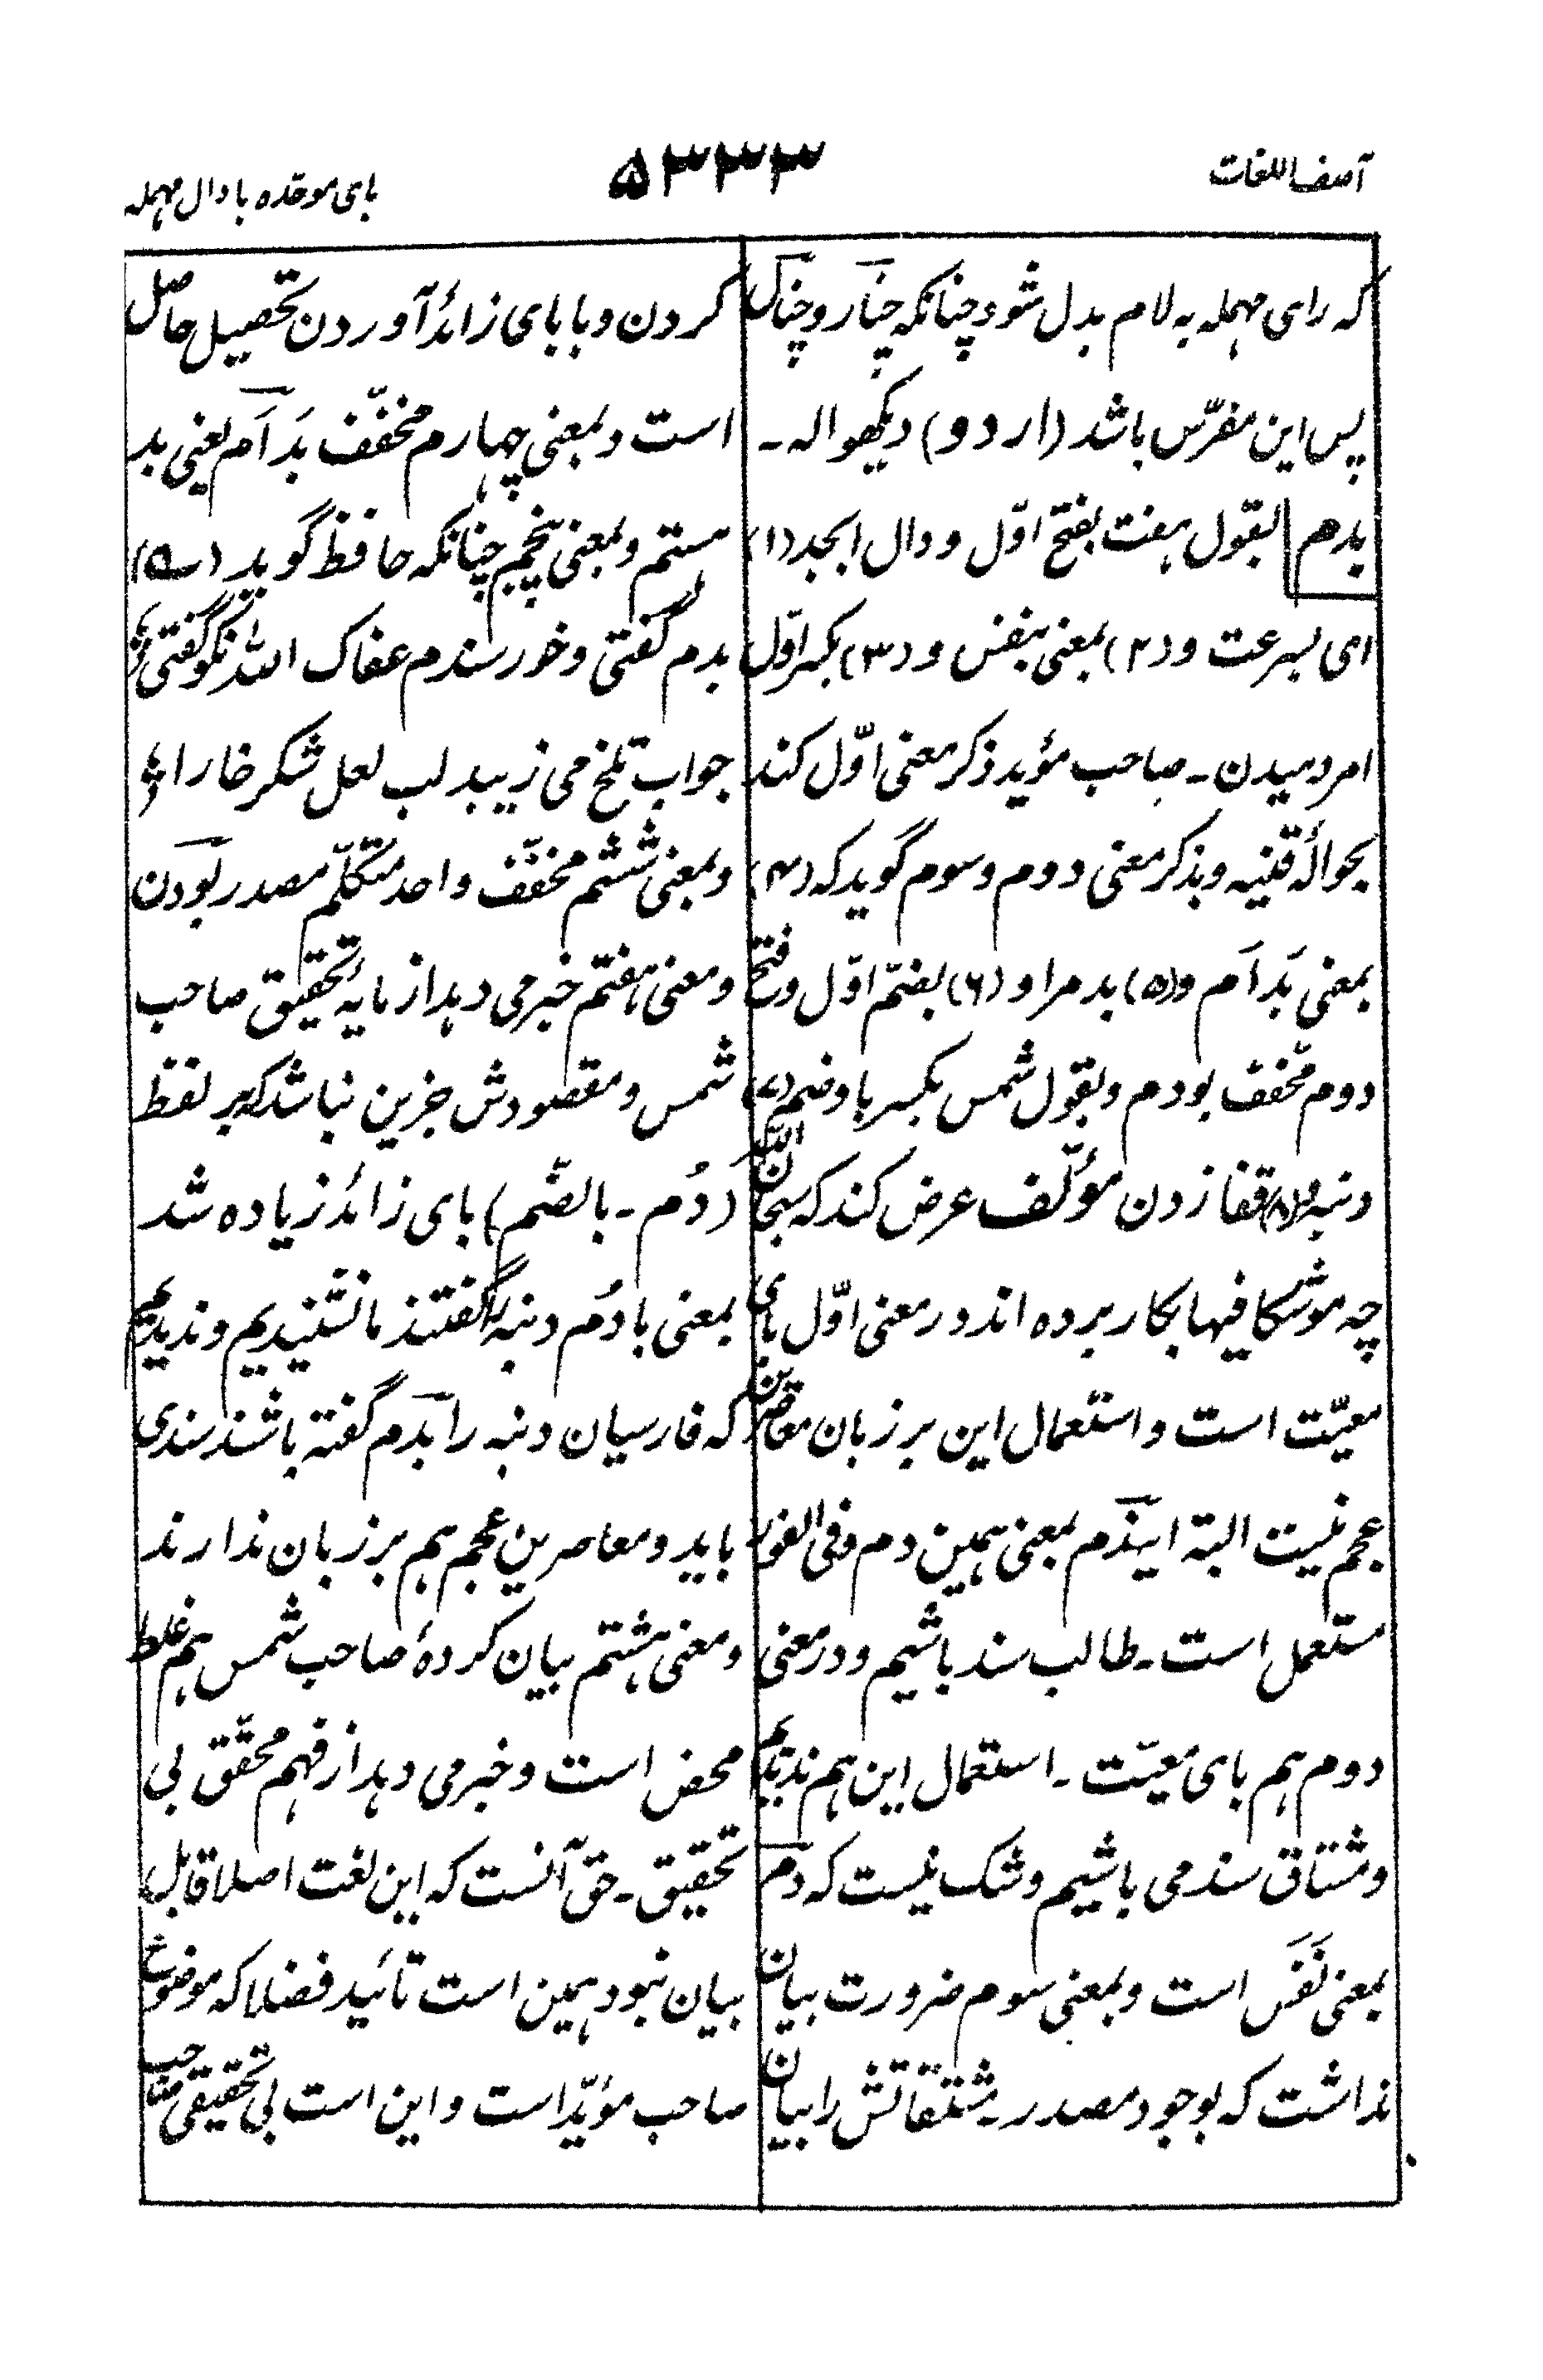 آصف اللغات
۵۳۳۳
بای موحّده با دال مهمله
که رای مهمله به لام بدل شود چنانکه چنار و چنال
پس این مفرّس باشد (اردو) دیکھو اله ۔
بدم بقول هفت بفتح اوّل و دال ابجد (۱)
ای بسرعت و (۲) بمعنی بنفس و (۳) بکسر اوّل
امر دمیدن ۔ صاحب مؤید ذکر معنی اوّل کند
بحوالهٔ قنیه و بذکر معنی دوم و سوم گوید که (۴)
بمعنی بَدَ اَم و (۵) بد مرا و (۶) بضمّ اوّل و فتح
دوم مخفّف بودم و بقول شمس بکسر با و ضم (۷)
دنبه و (۸) قفا زدن مؤلّف عرض کند که سبحان الله
چه موشگافیها بکار برده اند در معنی اوّل بای
معیّت است و استعمال این بر زبان معاصرین
عجم نیست البته ایندم بمعنی همین دم و فی الفور
مستعمل است ۔ طالب سند باشیم و در معنی
دوم هم بای معیّت ۔ استعمال این هم ندیدیم
و مشتاق سند می باشیم و شک نیست که دم
بمعنی نَفَس است و بمعنی سوم ضرورت بیان
نداشت که بوجود مصدر ۔ مشتقاتش را بیان
کردن و با بای زائد آوردن تحصیل حاصل
است و بمعنی چهارم مخفّف بَد اَم یعنی بد
هستم و بمعنی پنجم چنانکه حافظ گوید (۵)
بدم گفتی و خورسندم عفاک الله نکو گفتی
جواب تلخ می زیبد لب لعل شکر خارا
و بمعنی ششم مخفّف واحد متکلّم مصدر بودن
و معنی هفتم خبر می دهد از مایهٔ تحقیق صاحب
شمس و مقصودش جزین نباشد که بر لفظ
(دُم ۔ بالضّم) بای زائد زیاده شد
بمعنی با دُم دنبه را گفتند ما نشنیدیم و ندیدیم
که فارسیان دنبه را بدم گفته باشند سندی
باید و معاصرین عجم هم بر زبان ندارند
و معنی هشتم بیان کردهٔ صاحب شمس هم غلط
محض است و خبر می دهد از فهم محقّق بی
تحقیق ۔ حق آنست که این لغت اصلا قابل
بیان نبود همین است تائید فضلا که موضوع
صاحب مؤیّد است و این است بی تحقیقی صاحب